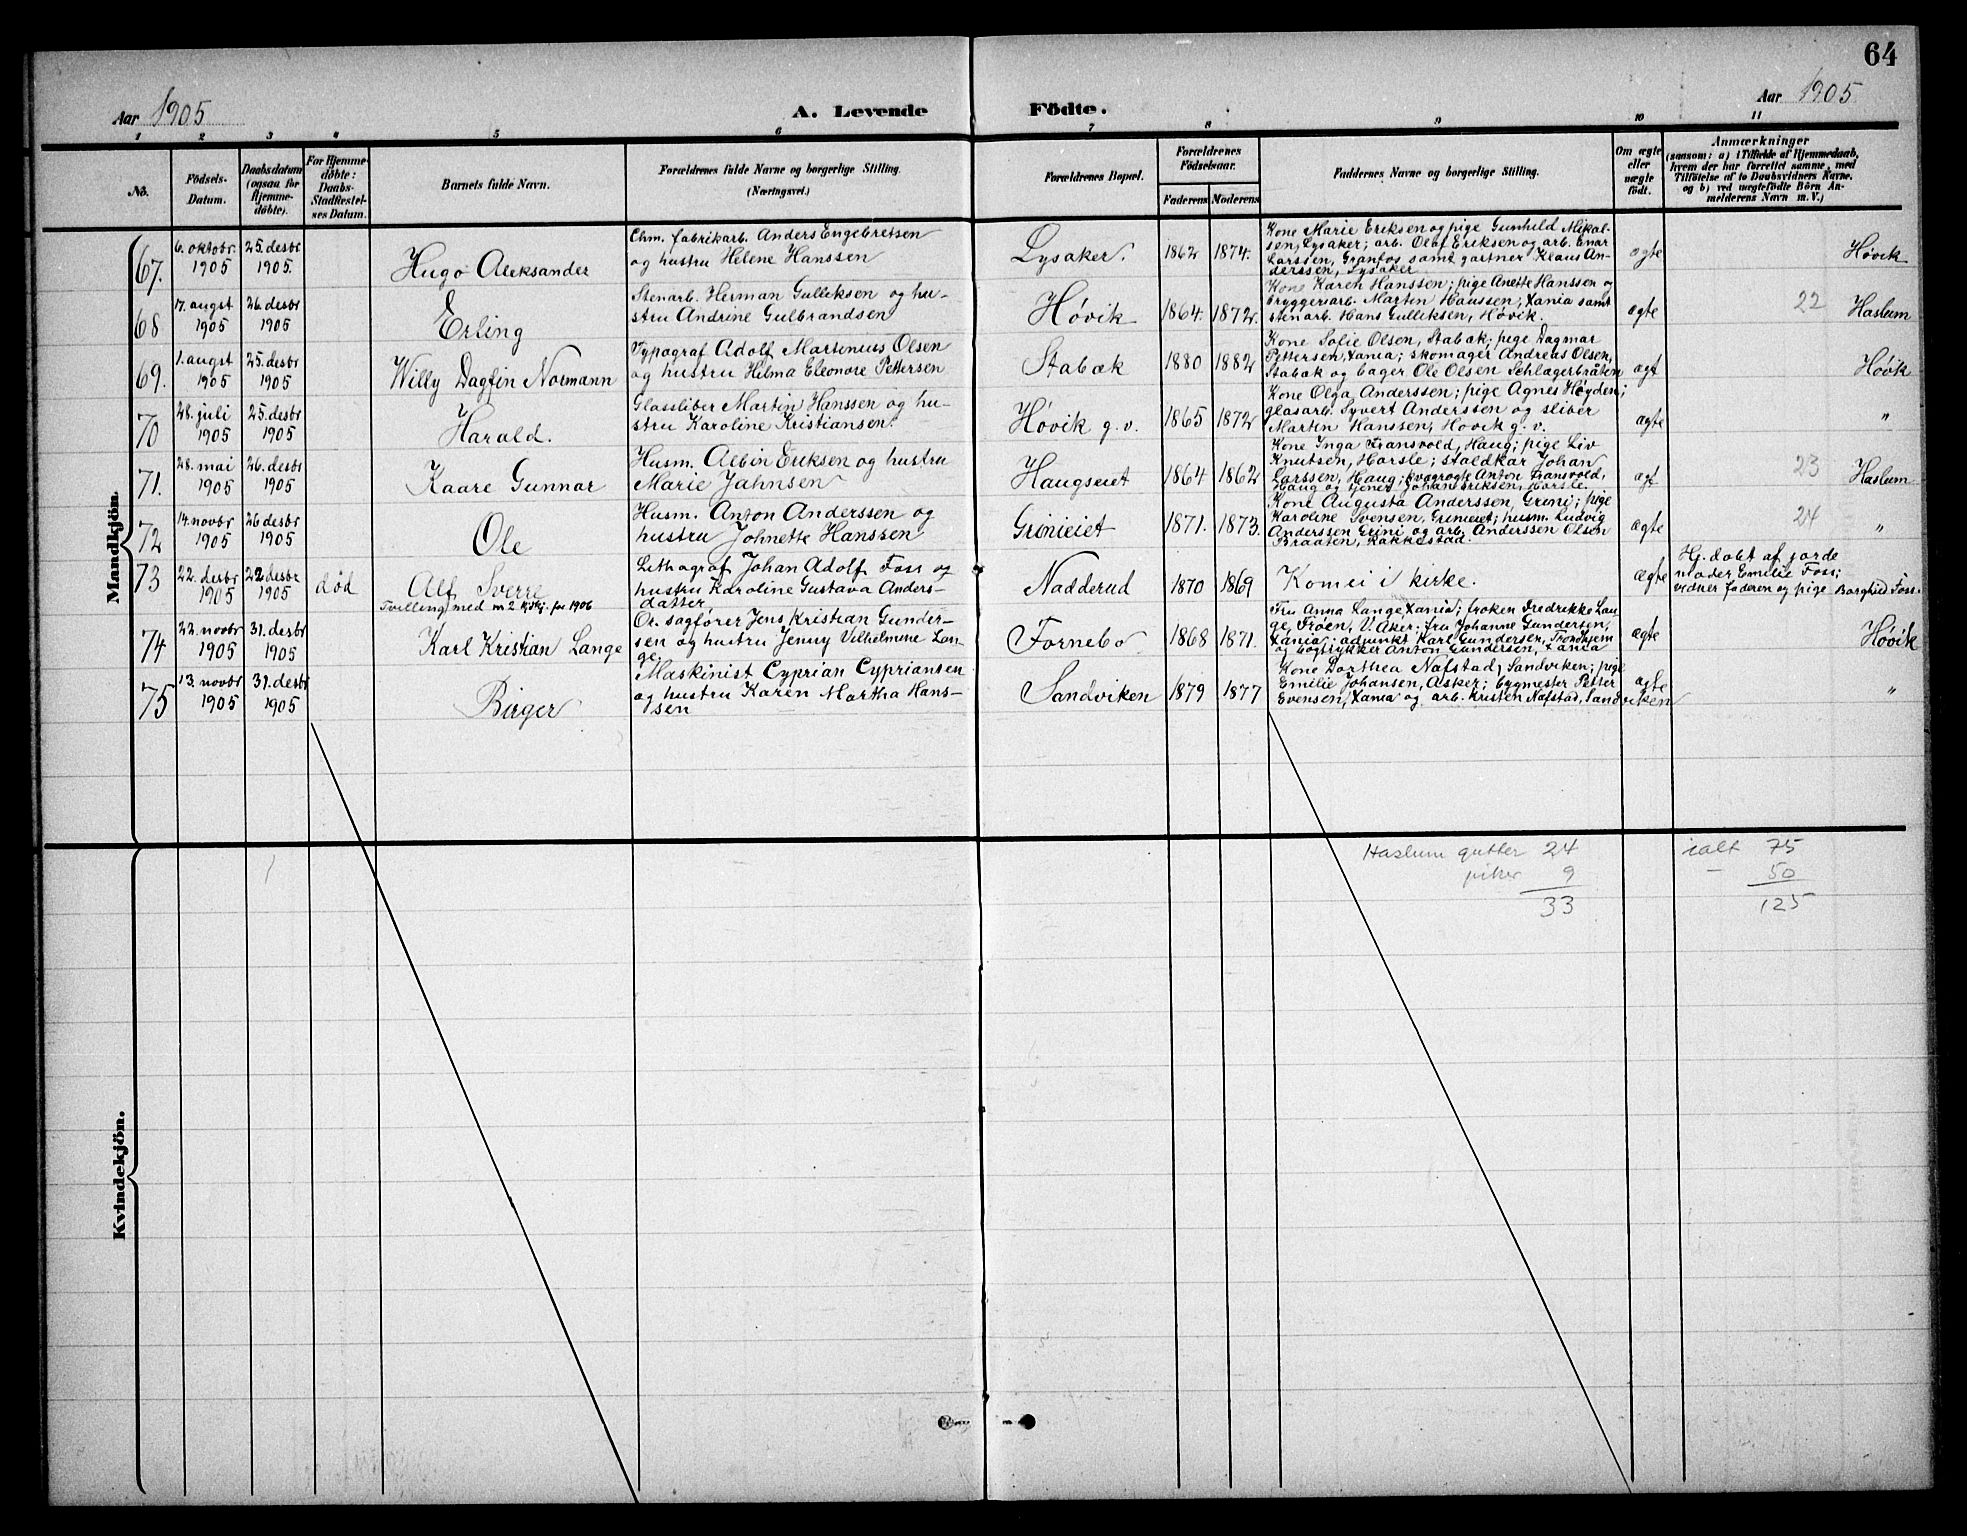 64
Aar 1905
A. Levende Födte.
Aar 1905
1 2 3 4 5 6 7 8 9 10 11
No.
Födsels-Datum.
Daabsdatum (ogsaa for Hjemme-döbte).
For Hjemme-döbte: Daabs-Stadfæstel-ses Datum.
Barnets fulde Navn.
Forældrenes fulde Navne og borgerlige Stilling. (Næringsvei.)
Forældrenes Bopæl.
Forældrenes Födselsaar.
Faderens Moderens
Faddernes Navne og borgerlige Stilling.
Om ægte eller uægte født.
Anmærkninger
(saasom: a) i Tilfælde af Hjemmedaab,
hvem der har forrettet samme, med
Tilföielse af to Daabsvidners Navne,
og b) ved uægtefödte Börn An-
melderens Navn m. V.)
Mandkjön.
67. 6. oktobr. 1905 25. desbr 1905. Hugo Aleksander
Chm. fabrikarb. Anders Engebretsen
og hustru Helene Hanssen
Lysaker. 1862 1874.
Kone Marie Eriksen og pige Gunhild Mikal-
sen, Lysaker; arb. Olaf Eriksen og arb. Enar
Larssen, Granfos samt gartner Klaus An-
derssen, Lysaker
ægte Høvik
68 17. augst 1905 26. desbr 1905 Erling
Stenarb. Herman Gulleksen og hu-
stru Andrine Gulbrandsen
Høvik 1864. 1872.
Kone Karen Hanssen; pige Anette Hanssen og
bryggeriarb. Martin Hanssen, Xania samt
stenarb. Hans Gulleksen, Høvik.
ægte 22 Haslum
69. 1. augst 1905 25. desbr 1905 Willy Dagfin Normann
Typograf Adolf Martinius Olsen
og hustru Hilma Eleonore Pettersen
Stabæk 1880 1882
Kone Sofie Olsen, Stabæk; pige Dagmar
Pettersen, Xania; skomager Andreas Olsen,
Stabæk og bager Ole Olsen Schlagerbråten
ægt Høvik
70 28. juli 1905 25. desbr 1905 Harald.
Glassliber Martin Hanssen og hu-
stru Karoline Kristiansen.
Høvik g. v. 1865 1872
Kone Olga Anderssen; pige Agnes Høyden;
glasarb. Syvert Anderssen og sliber
Martin Hanssen, Høvik g. v.
ægte "
71. 28. mai 1905 26. desbr 1905 Kaare Gunnar
Husm. Albin Eriksen og hustru
Marie Jahnsen
Haugseiet 1864 1862
Kone Inga Fransvold, Haug; pige Liv
Knutsen, Horsle; staldkar Johan
Larssen, Haug; Anton Fransvold,
Haug og tjener Johan Eriksen, Horsle.
ægt 23 Haslum
72 14. novbr 1905 26 desbr 1905 Ole
Husm. Anton Anderssen og
hustru Johnette Hanssen
Grinieiet 1871. 1873.
Kone Augusta Anderssen, Grini; pige
Karoline Svensen, Grinieiet; husm. Ludvig
Anderssen Grini og arb. Anderssen Olsen
Braaten, Kakkestad.
ægte 24 "
73 22. desbr 1905 22 desbr 1905 død Alf Sverre
Tvilling med no 2 kvkj. for 1906
Lithograf Johan Adolf Foss og
hustru Karoline Gustava Anders-
datter
Nadderud 1870 1869
Kom ei i kirke.
ægte
Hj. døbt af jorde
moder Emelie Foss;
vidner faderen og pige Borghild Foss.
74 22. novbr 1905 31. desbr 1905 Karl Kristian Lange
Or. sagfører Jens Kristian Gunder-
sen og hustru Jenny Vilhelmine Lan-
ge
Fornebo 1868 1871.
Fru Anna Lange, Xania; frøken Fredrikke Lan-
ge, Frøen, V. Aker; fru Johanne Gundersen,
Xania; adjunkt Karl Gundersen, Trondhjem
og bogtrykker Anton Gundersen, Xania
ægte Høvik
75 13. novbr 1905 31. desbr 1905 Birger
Maskinist Cyprian Cypriansen
og hustru Karen Martha Hans-
sen
Sandviken 1879 1877
Kone Dorthea Nafstad, Sandviken; pige
Emelie Johansen, Asker; bygmester Petter
Evensen, Xania og arb. Kristen Nafstad, Sandviken
ægte "
Kvindekjön.
Haslum gutter 24 ialt 75
piker 9 — 50
33 125